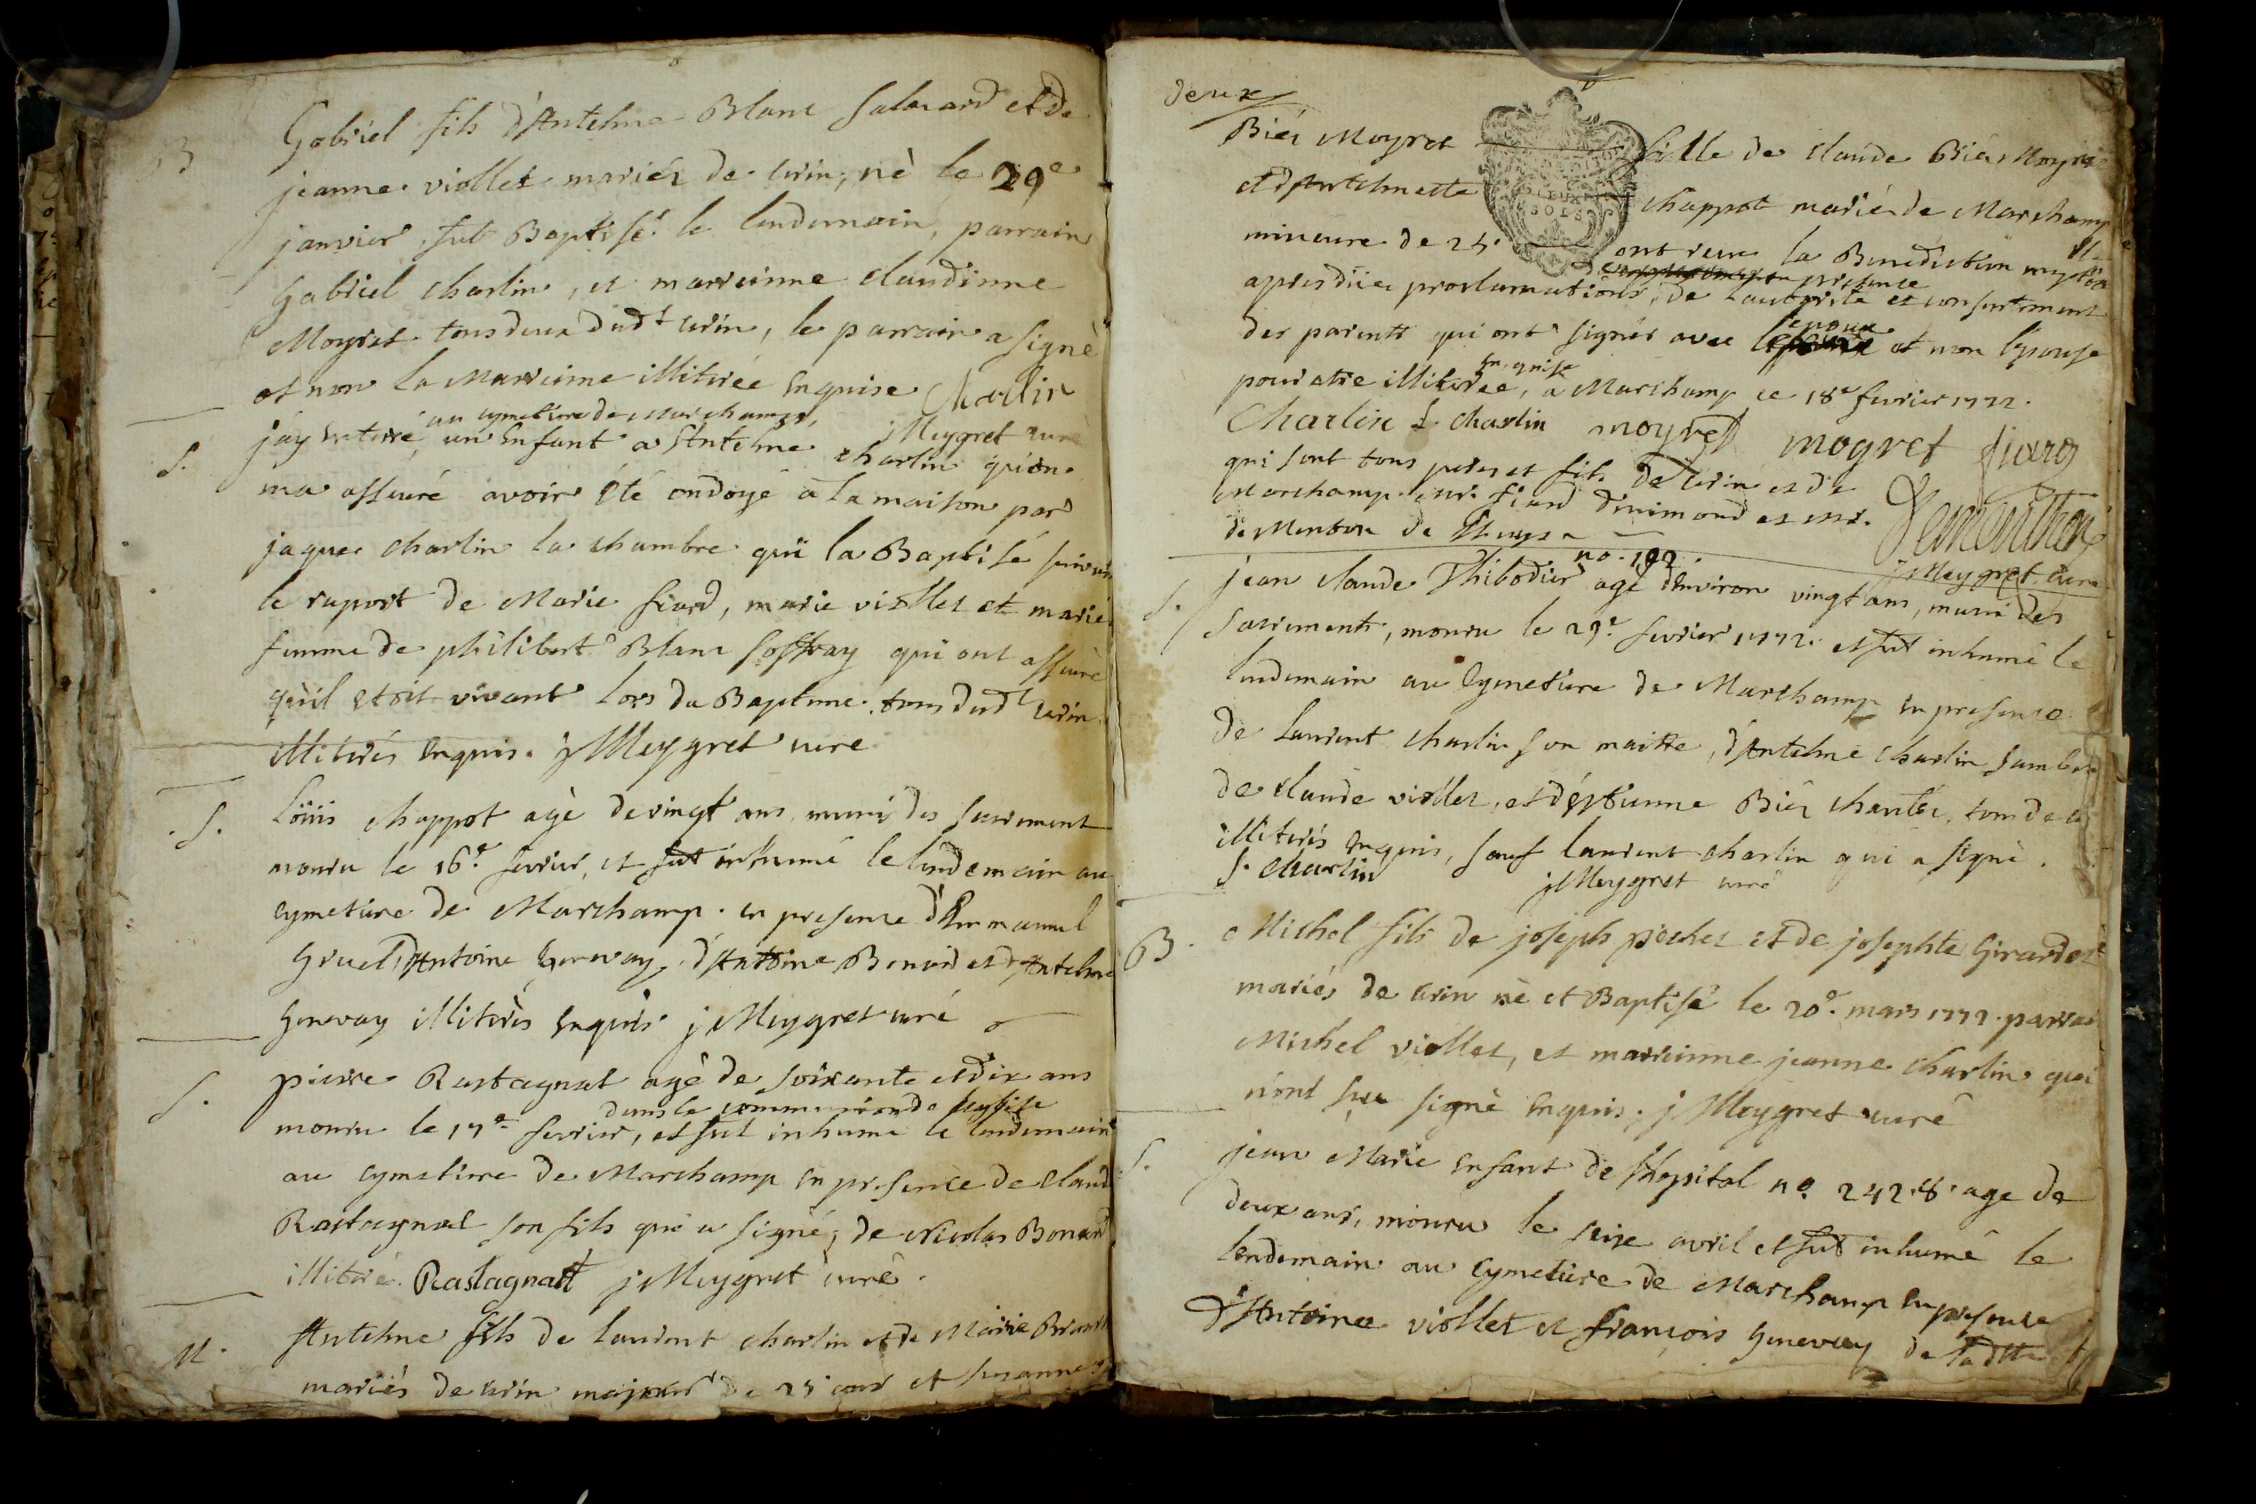 B
Gabriel fils d'Antelme Blanc Salavard et de
jeanne viollet mariés de cerin, né le 29e
janvier, fut Baptisé le lendemain, parrain
Gabriel charlin, et marreinne claudinne
Moyret tous deux dudt cerin, le parrain a signé
et non la Marreinne illitirée enquise Charlin
au cymetiere de Marchamp, jMeygret curé
S.
jay enterré un enfant a Antelme charlin qu'on
ma assuré avoir été ondoyé a la maison par
jaques charlin la chambre qui la Baptisé suivant
le raport de Marie fiard, marie viollet et marie
femme de philibert Blanc Soffray qui ont assuré
qu'il etoit vivant lors du Baptême. tous dudt cerin
illitirés enquis. jMeygret curé
S.
Loüis chappot agé de vingt ans muni des sacrement
mouru le 16e fevrier, et fut inhumé le lendemain au
cymetiere de Marchamp. en presence d'Emmanuel
Gruel, d'Antoine Genevay, d'Antoine Bonard et d'Antelme
Genevay illitirés enquis jMeygret curé
S.
pierre Rastagnat agé de soixante et dix ans
dans la communion de leglise
mouru le 17e fevrier, et fut inhumé le lendemain
au cymetiere de Marchamp en presence de claude
Rastagnat son fils qui a signé, de Nicolas Bonard
illitiré. Rastagnatt jMeygret curé.
M.
Antelme fils de laurent charlin et de Marie
mariés de cerin majeur de 25 ans et susanne
deux
Biés Moyret fille de claude Biés Moyret
DEUX SOLS
et d'Antelmette chappot mariés de Marchamp
mineure de 25. ont reçu la Benediction nuptiale
presence
apres dües proclamations, de l'autorité et consentement
l'epoux
des parents qui ont signés avec et non l'epouse
enquise
pour etre illitirée, a Marchamp ce 18e fevrier 1772.
Charlin L. charlin moyret mogret fiard
qui sont tous peres et fils de cerin et de
Marchamp. fiard et Mr.
de Montou de
Demonthou
jMeygret curé
no. 192.
S.
jean claude Thibodier agé d'environ vingt ans, muni des
sacrements, mouru le 29e fevrier 1772. et fut inhumé le
lendemain au Cymetiere de Marchamp en presence
de laurent charlin son maitre, d'Antelme charlin
de claude viollet, et d'Estienne Biés chantés, tous de ce
illitirés enquis, sauf laurent charlin qui a signé.
l. charlin jMeygret curé
B.
Michel fils de joseph pochet et de josephte Girardet
mariés de cerin né et Baptisé le 20e. mars 1772. parrain
Michel viollet, et marreinne jeanne charlin qui
n'ont sçu signé enquis; jMeygret curé
S.
jean Marie enfant de l'hopital no. 242.8. age de
deux ans, mouru le seize avril et fut inhumé le
lendemain au Cymetiere de Marchamp en presence
d'Antoine viollet et françois Genevay de ladte